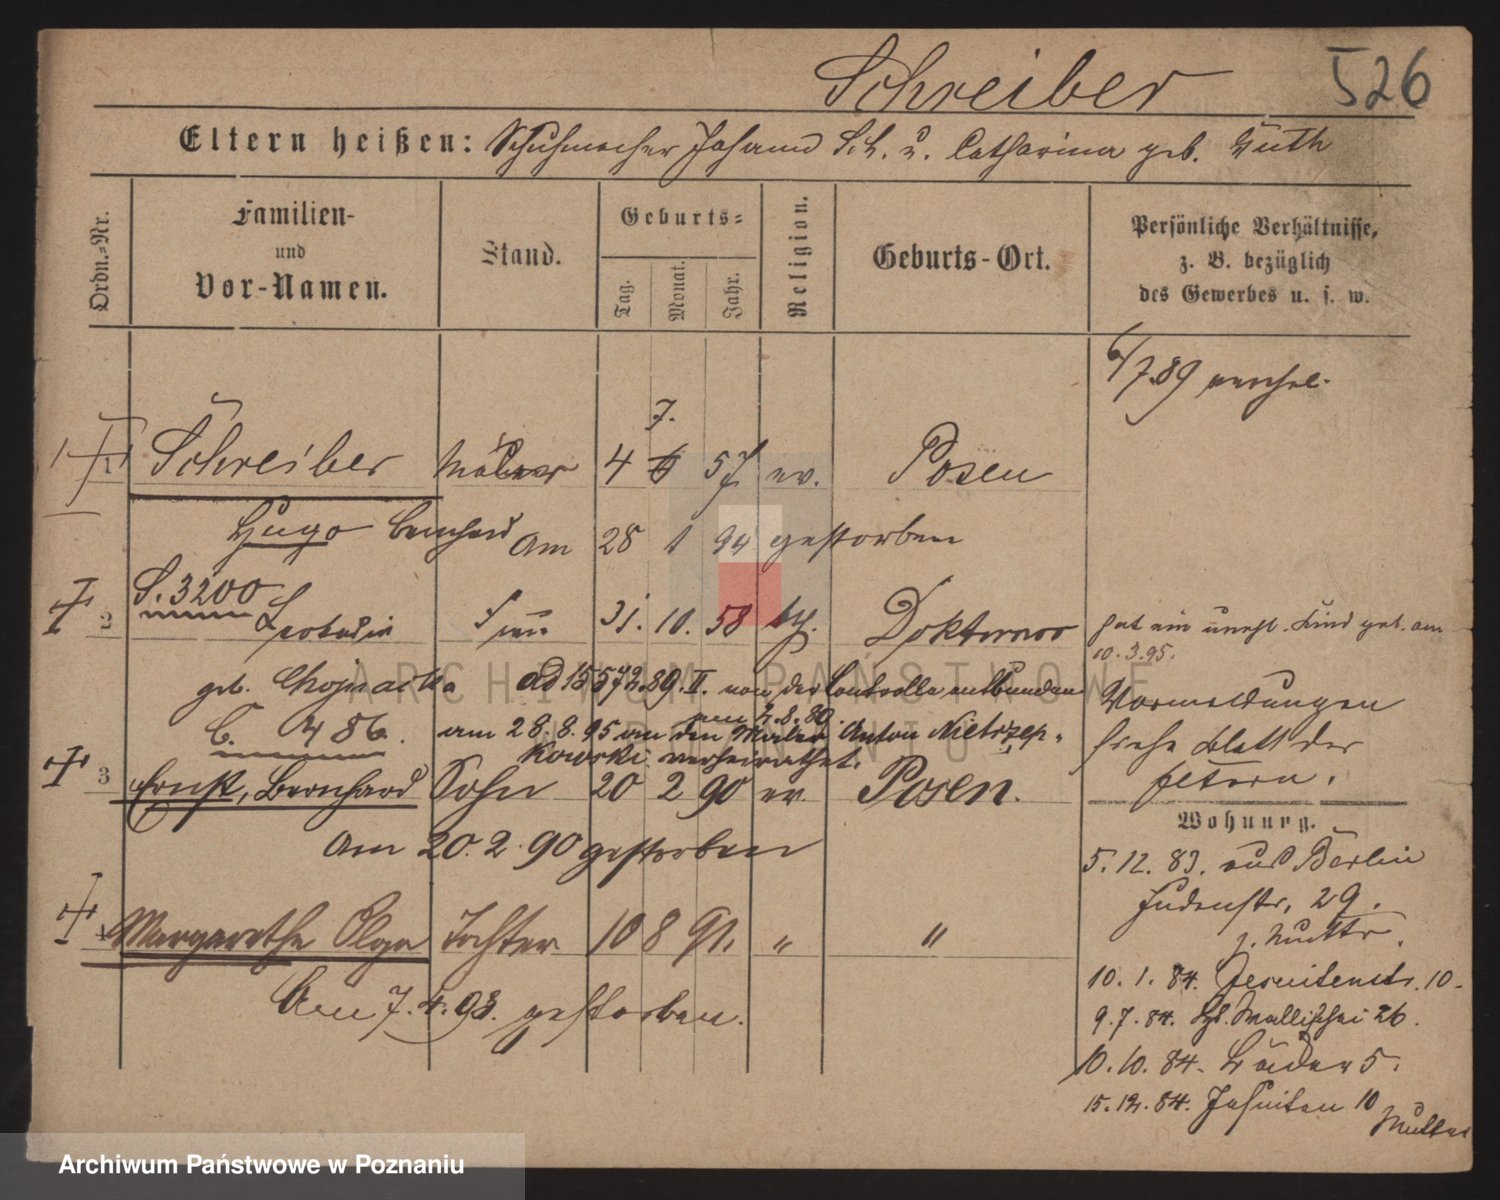 Schreiber 526
Eltern heißen: Schuhmacher Johann Sch. u. Catharina geb. Guth
Ordn.-Nr.
Familien-
und
Vor-Namen.
Stand.
Geburts-
Tag.
Monat.
Jahr.
Religion.
Geburts-Ort.
Persönliche Verhältnisse,
z. B. bezüglich
des Gewerbes u. s. w.
6/7.89 verehel.
7.
1 Schreiber Maler 4 6 57 ev. Posen
Hugo Bernhard Am 28 1 94 gestorben
S. 3200
2 Leokadia Frau 31. 10. 58 kth. Doktorowo
hat ein unehl. Kind geb. am
10.3.95.
geb. Chojnacka ad 15572.89.II. von der Controlle entbunden
am 2.8.89.
C. 486. am 28.8.95 an den Maler Anton Nietrzep-
kowski verheirathet.
Vormeldungen
siehe Blatt der
Eltern.
3 Ernst, Bernhard Sohn 20 2 90 ev. Posen.
Am 20.2.90 gestorben
4 Margarethe Olga Tochter 10 8 91. " "
Am 7.4.93. gestorben.
Wohnung.
5.12.83. aus Berlin
Judenstr. 29.
z. Mutter.
10.1.84. Jesuitenstr. 10.
9.7.84. Wallischei 26.
10.10.84. Bäcker 5.
15.12.84. Jesuiten 10
Mutter
ARCHIWUM PAŃSTWOWE
POZNANIU
Archiwum Państwowe w Poznaniu